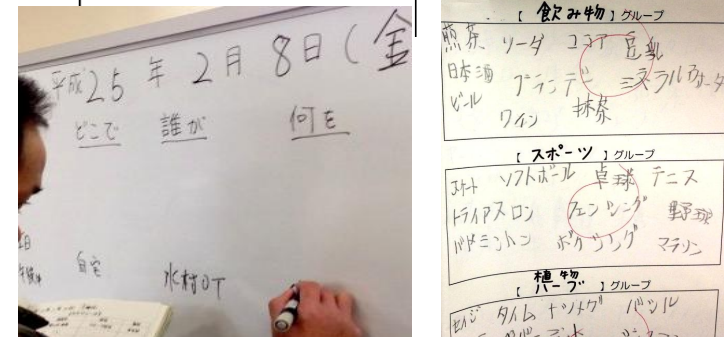 平成25年2月8日(金
どこで 誰が 何を
自宅 水村OT
【 飲み物 】グループ
煎茶 ソーダ ココア 豆乳
日本酒 ブランデー ミネラルウォーター
ビール ワイン 抹茶
【 スポーツ 】グループ
スケート ソフトボール 卓球 テニス
トライアスロン フェンシング 野球
バドミントン ボクシング マラソン
植物
【 ハーブ 】グループ
セイジ タイム ナツメグ バジル